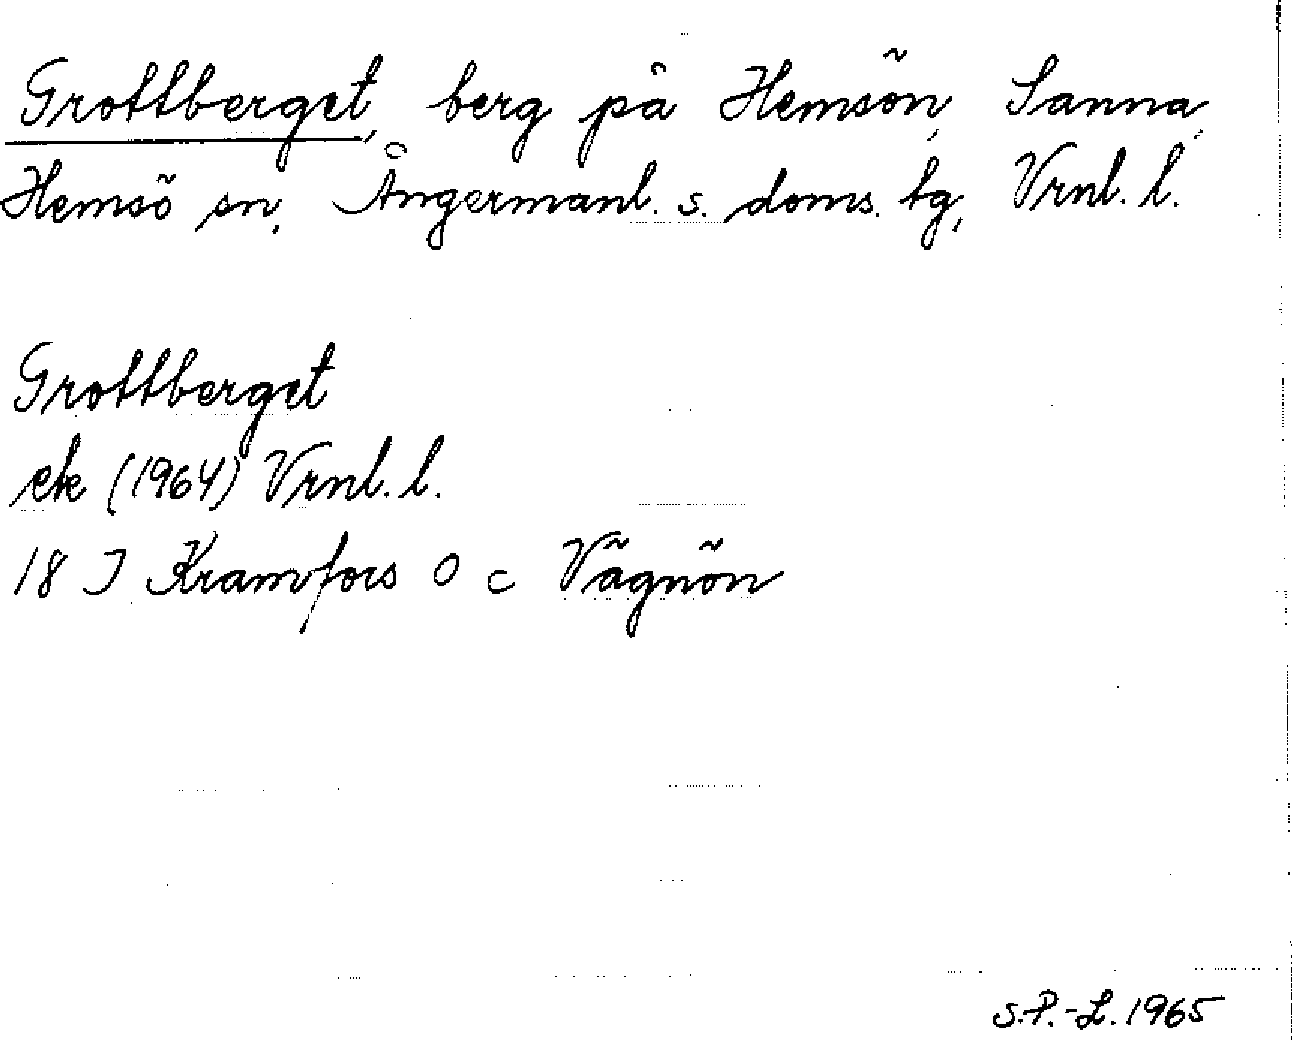 Grottberget, berg på Hemsön, Sanna,
Hemsö sn, Ångermanl. s. doms. tg, Vrnl. l.
Grottberget
ek (1964) Vrnl. l.
18 J Kramfors O c Vägnön
S.P.-L. 1965